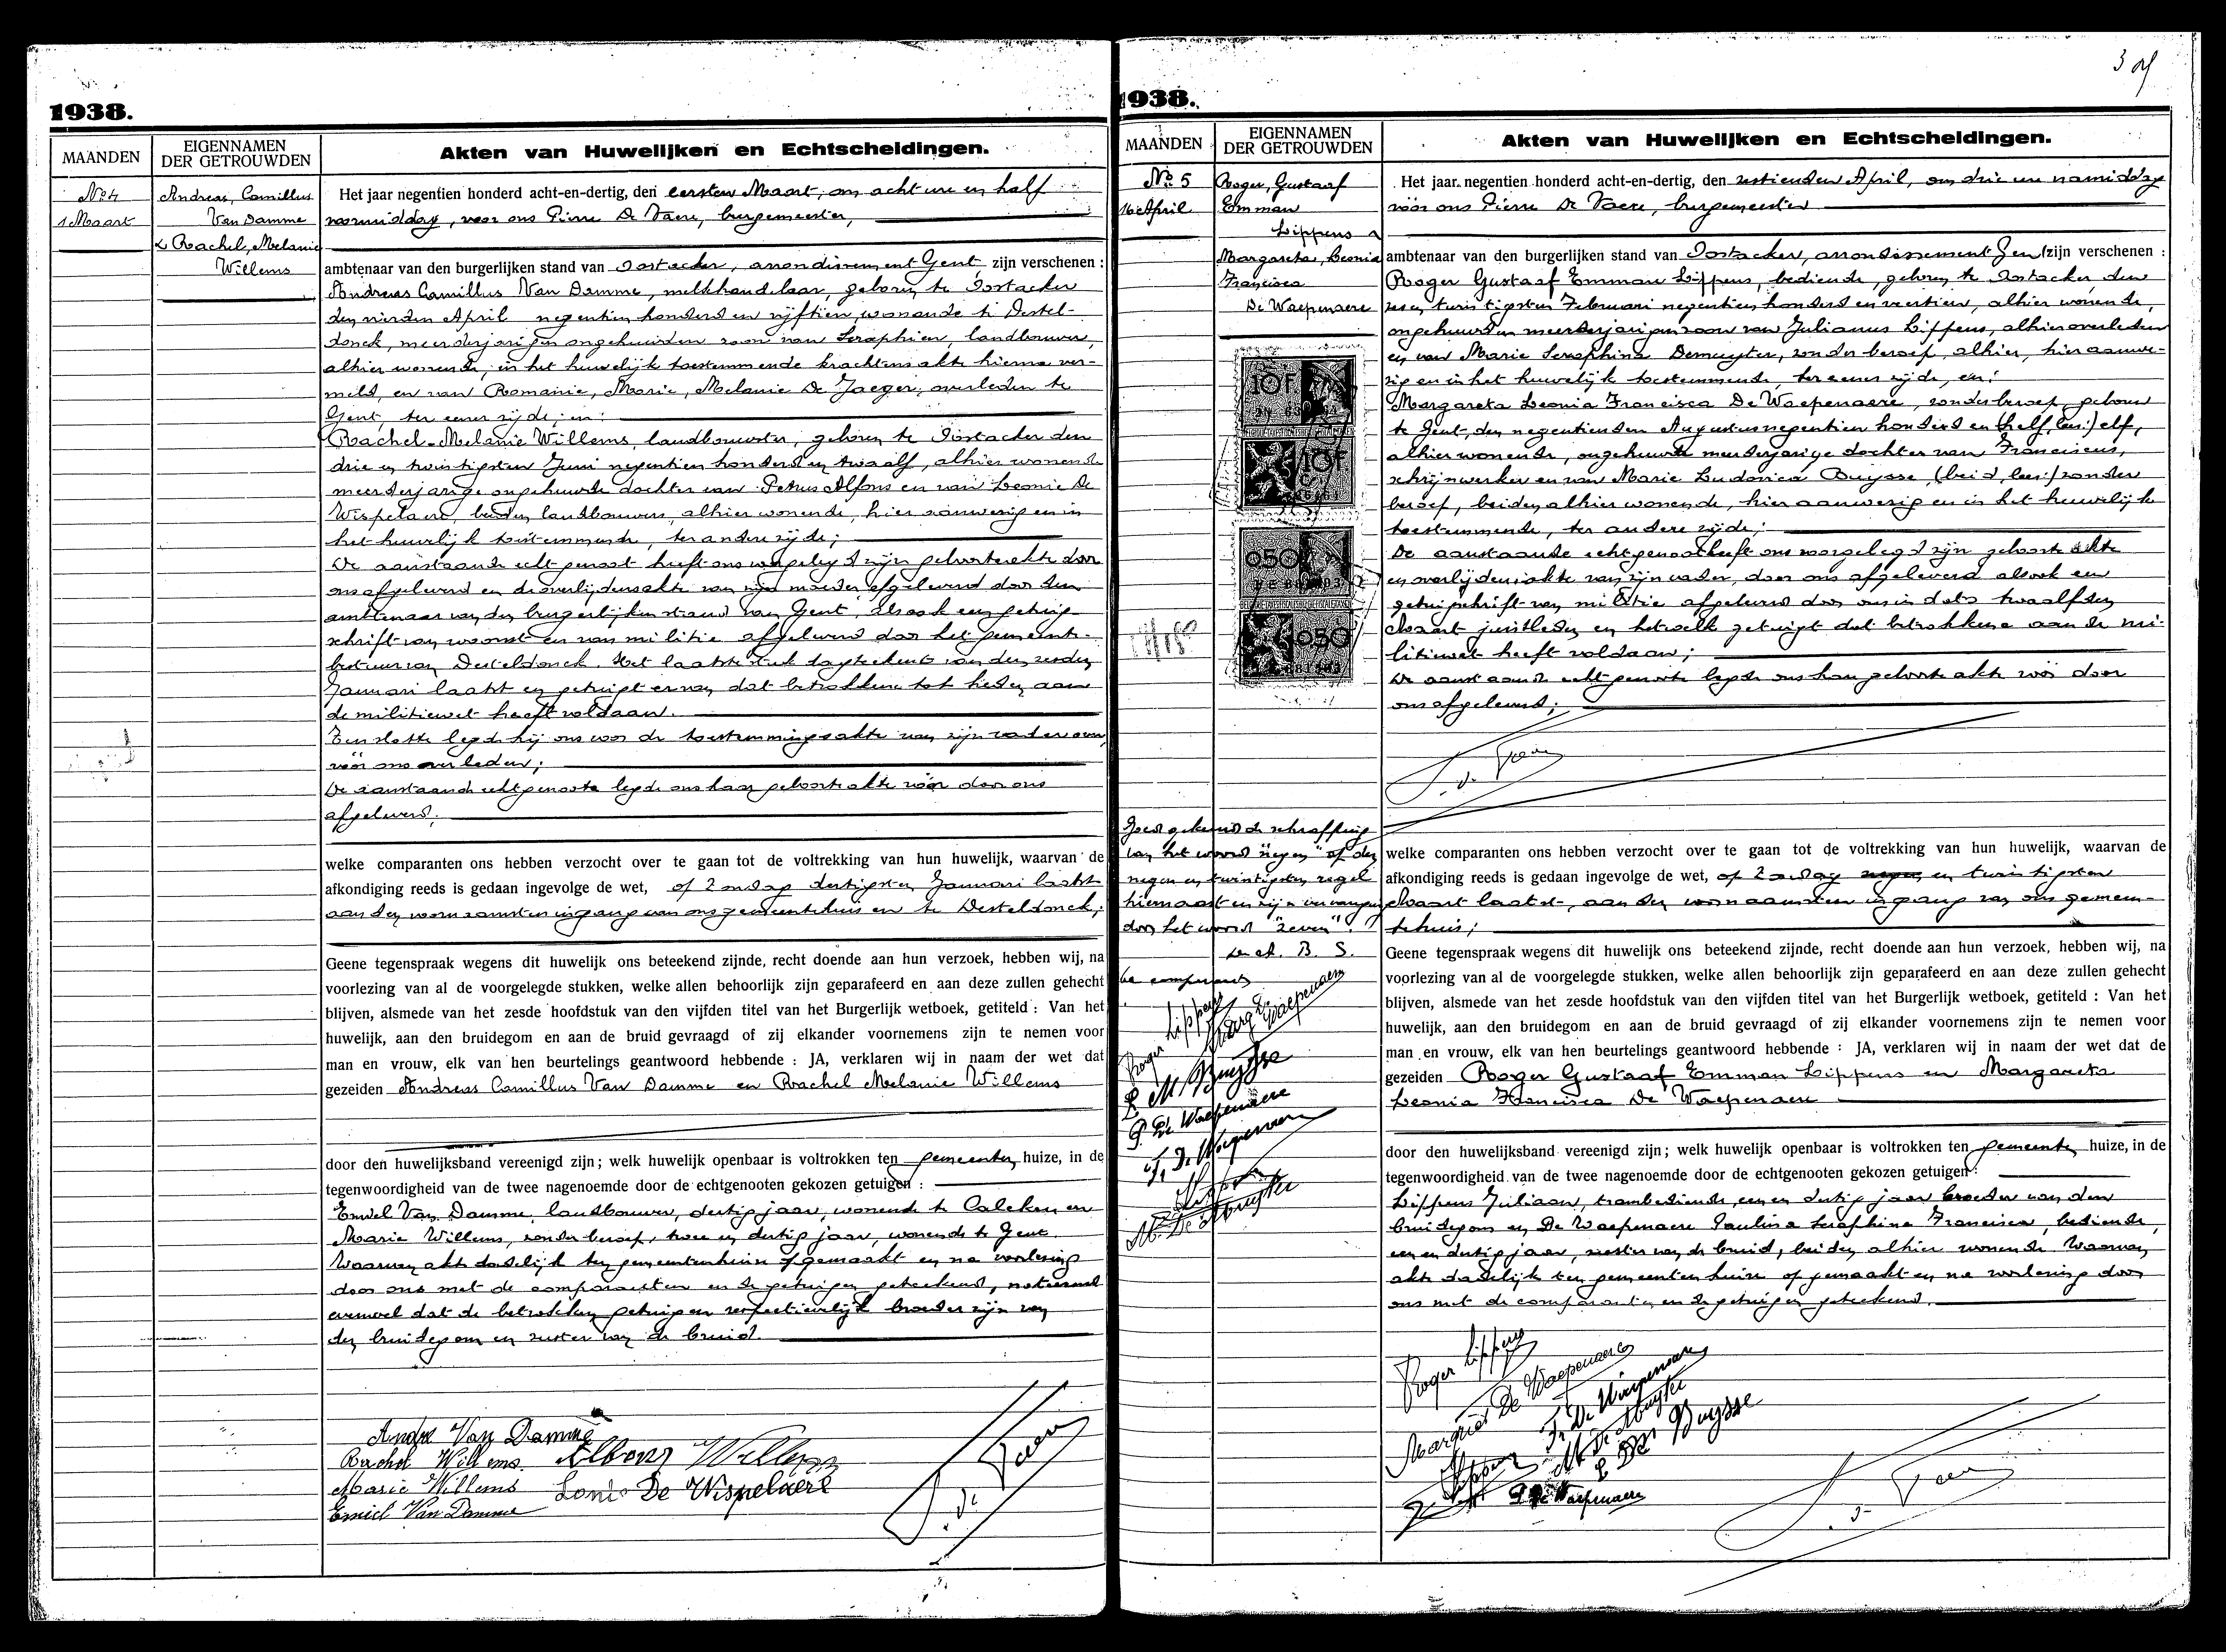 1938.
MAANDEN
EIGENNAMEN
DER GETROUWDEN
Akten van Huwelijken en Echtscheidingen.
No 4
1 Maart
Andreas, Camillus
Van Damme
& Rachel, Melanie
Willems
Het jaar negentien honderd acht-en-dertig, den eersten Maart, om acht ure en half
voormiddag, voor ons Pierre De Vaere, burgemeester,
ambtenaar van den burgerlijken stand van Oostacker, arrondissement Gent, zijn verschenen :
Andreas Camillus Van Damme, melkhandelaar, geboren te Oostacker
den vierden April negentien honderd en vijftien, wonende te Destel-
donck, meerderjarigen ongehuwden zoon van Seraphien, landbouwer,
alhier wonende, in het huwelijk toestemmende krachtens akte hierna ver-
meld, en van Romanie, Marie, Melanie De Jaeger, overleden te
Gent, ter eener zijde; en:
Rachel-Melanie Willems, landbouwster, geboren te Oostacker den
drie en twintigsten Juni negentien honderd en twaalf, alhier wonende
meerderjarige ongehuwde dochter van Petrus Alfons en van Leonie De
Wispelaere, beiden landbouwers, alhier wonende, hier aanwezig en in
het huwelijk toestemmende, ter andere zijde;
De aanstaande echtgenoot heeft ons voorgelegd zijn geboorteakte door
ons afgeleverd en de overlijdensakte van zijn moeder afgeleverd door den
ambtenaar van den burgerlijken stand van Gent, alsook een getuig-
schrift van woonst en van militie afgeleverd door het gemeente-
bestuur van Desteldonck. Het laatste stuk dagteekent van den
Januari laatst en getuigt ervan dat betrokkene tot heden aan
de militiewet heeft voldaan.
Ten slotte legde hij ons voor de toestemmingsakte van zijn vader
vóór ons verleden;
De aanstaande echtgenoote legde ons haar geboorteakte vóór door ons
afgeleverd.
welke comparanten ons hebben verzocht over te gaan tot de voltrekking van hun huwelijk, waarvan de
afkondiging reeds is gedaan ingevolge de wet, op Zondag dertigsten Januari laatst
aan den voornaamsten ingang van ons gemeentehuis en te Desteldonck;
Geene tegenspraak wegens dit huwelijk ons beteekend zijnde, recht doende aan hun verzoek, hebben wij, na
voorlezing van al de voorgelegde stukken, welke allen behoorlijk zijn geparafeerd en aan deze zullen gehecht
blijven, alsmede van het zesde hoofdstuk van den vijfden titel van het Burgerlijk wetboek, getiteld : Van het
huwelijk, aan den bruidegom en aan de bruid gevraagd of zij elkander voornemens zijn te nemen voor
man en vrouw, elk van hen beurtelings geantwoord hebbende : JA, verklaren wij in naam der wet dat
gezeiden Andreas Camillus Van Damme en Rachel Melanie Willems
door den huwelijksband vereenigd zijn; welk huwelijk openbaar is voltrokken ten gemeenten huize, in de
tegenwoordigheid van de twee nagenoemde door de echtgenooten gekozen getuigen :
Emiel Van Damme, landbouwer, dertig jaar, wonende te Calcken en
Marie Willems, zonder beroep, twee en dertig jaar, wonende te Gent.
Waarvan akt dadelijk ten gemeentenhuize opgemaakt en na voorlezing
door ons met de comparanten en de getuigen geteekend, noteerend
evenwel dat de betrokken getuigen respectievelijk broeder zijn van
den bruidegom en zuster van de bruid.
André Van Damme
Rachel Willems. Alfons Willems
Maria Willems Leonie De Wispelaere
Emiel Van Damme
1938.
MAANDEN
EIGENNAMEN
DER GETROUWDEN
Akten van Huwelijken en Echtscheidingen.
No 5
16 April
Roger, Gustaaf
Emman
Lippens &
Margareta, Leonia
Francisca
De Waepenaere
10F
10F
050
050
Het jaar negentien honderd acht-en-dertig, den zestienden April, om drie ure namiddag
vóór ons Pierre De Vaere, burgemeester
ambtenaar van den burgerlijken stand van Oostacker, arrondissement Gent zijn verschenen :
Roger Gustaaf Emman Lippens, bediende, geboren te Oostacker, den
zes en twintigsten Februari negentien honderd en veertien, alhier wonende,
ongehuwden meerderjarigen zoon van Julianus Lippens, alhier overleden
en van Marie Seraphina Demuyter, zonder beroep, alhier, hier aanwe-
zig en in het huwelijk toestemmende, ter eener zijde, en:
Margareta Leonia Francisca De Waepenaere, zonder beroep, geboren
te Gent, den negentienden Augustus negentien honderd en (half, lees:) elf,
alhier wonende, ongehuwde meerderjarige dochter van Franciscus,
schrijnwerker en van Marie Ludovica Buysse, (beid, lees:) zonder
beroep, beiden alhier wonende, hier aanwezig en in het huwelijk
toestemmende, ter andere zijde;
De aanstaande echtgenoot heeft ons voorgelegd zijn geboorte akte
en overlijdensakte van zijn vader, door ons afgeleverd alsook een
getuigschrift van militie afgeleverd door ons in dato twaalfden
Maart juistleden en hetwelk getuigt dat betrokkene aan de mi-
litiewet heeft voldaan;
De aanstaande echtgenoote legde ons haar geboorte akte vóór door
ons afgeleverd;
Goedgekeurd de schraffing
van het woord "negen" op den
negen en twintigsten regel
hiernaast en zijn vervanging
door het woord "zeven".
De at. B. S.
De comparanten
Roger Lippens
Marg. De Waepenaere
L M Buysse
P. De Waepenaere
F. De Waepenaere
M. De Muyter
welke comparanten ons hebben verzocht over te gaan tot de voltrekking van hun huwelijk, waarvan de
afkondiging reeds is gedaan ingevolge de wet, op Zondag negen en twintigsten
Maart laatst, aan den voornaamsten ingang van ons gemeen-
tehuis;
Geene tegenspraak wegens dit huwelijk ons beteekend zijnde, recht doende aan hun verzoek, hebben wij, na
voorlezing van al de voorgelegde stukken, welke allen behoorlijk zijn geparafeerd en aan deze zullen gehecht
blijven, alsmede van het zesde hoofdstuk van den vijfden titel van het Burgerlijk wetboek, getiteld : Van het
huwelijk, aan den bruidegom en aan de bruid gevraagd of zij elkander voornemens zijn te nemen voor
man en vrouw, elk van hen beurtelings geantwoord hebbende : JA, verklaren wij in naam der wet dat de
gezeiden Roger Gustaaf Emman Lippens en Margareta
Leonia Francisca De Waepenaere
door den huwelijksband vereenigd zijn; welk huwelijk openbaar is voltrokken ten gemeenten huize, in de
tegenwoordigheid van de twee nagenoemde door de echtgenooten gekozen getuigen :
Lippens Juliaan, trambediende, een en dertig jaar broeder van den
bruidegom en De Waepenaere Paulina Seraphina Francisca, bediende,
een en dertig jaar, zuster van de bruid, beiden alhier wonende. Waarvan
akte dadelijk ten gemeentenhuize opgemaakt en na voorlezing door
ons met de comparanten en de getuigen geteekend.
Roger Lippens
Margriet De Waepenaere
Fr. De Waepenaere
M. De Muyter
L M Buysse
Lippens
P. De Waepenaere